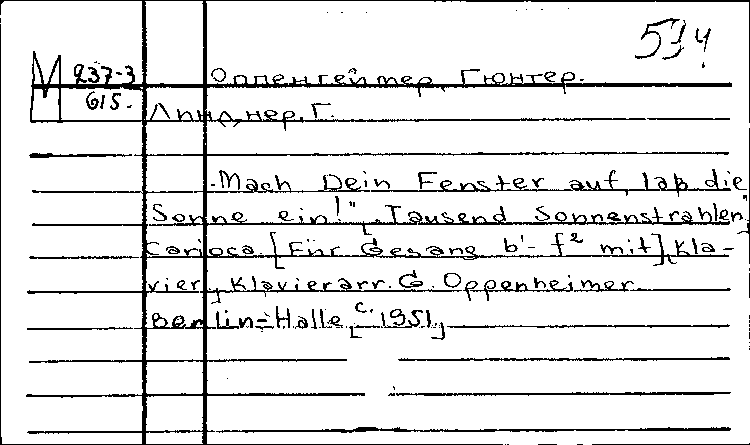 534
М 237-3 Оппенгеймер, Гюнтер.
615. Линднер, Г.
"Mach Dein Fenster auf, laß die
Sonne ein!" [„Tausend Sonnenstrahlen"]
Carioca. [Für Gesang b'- f² mit] Kla-
vier, Klavierarr. G. Oppenheimer.
Berlin-Halle, [c. 1951]